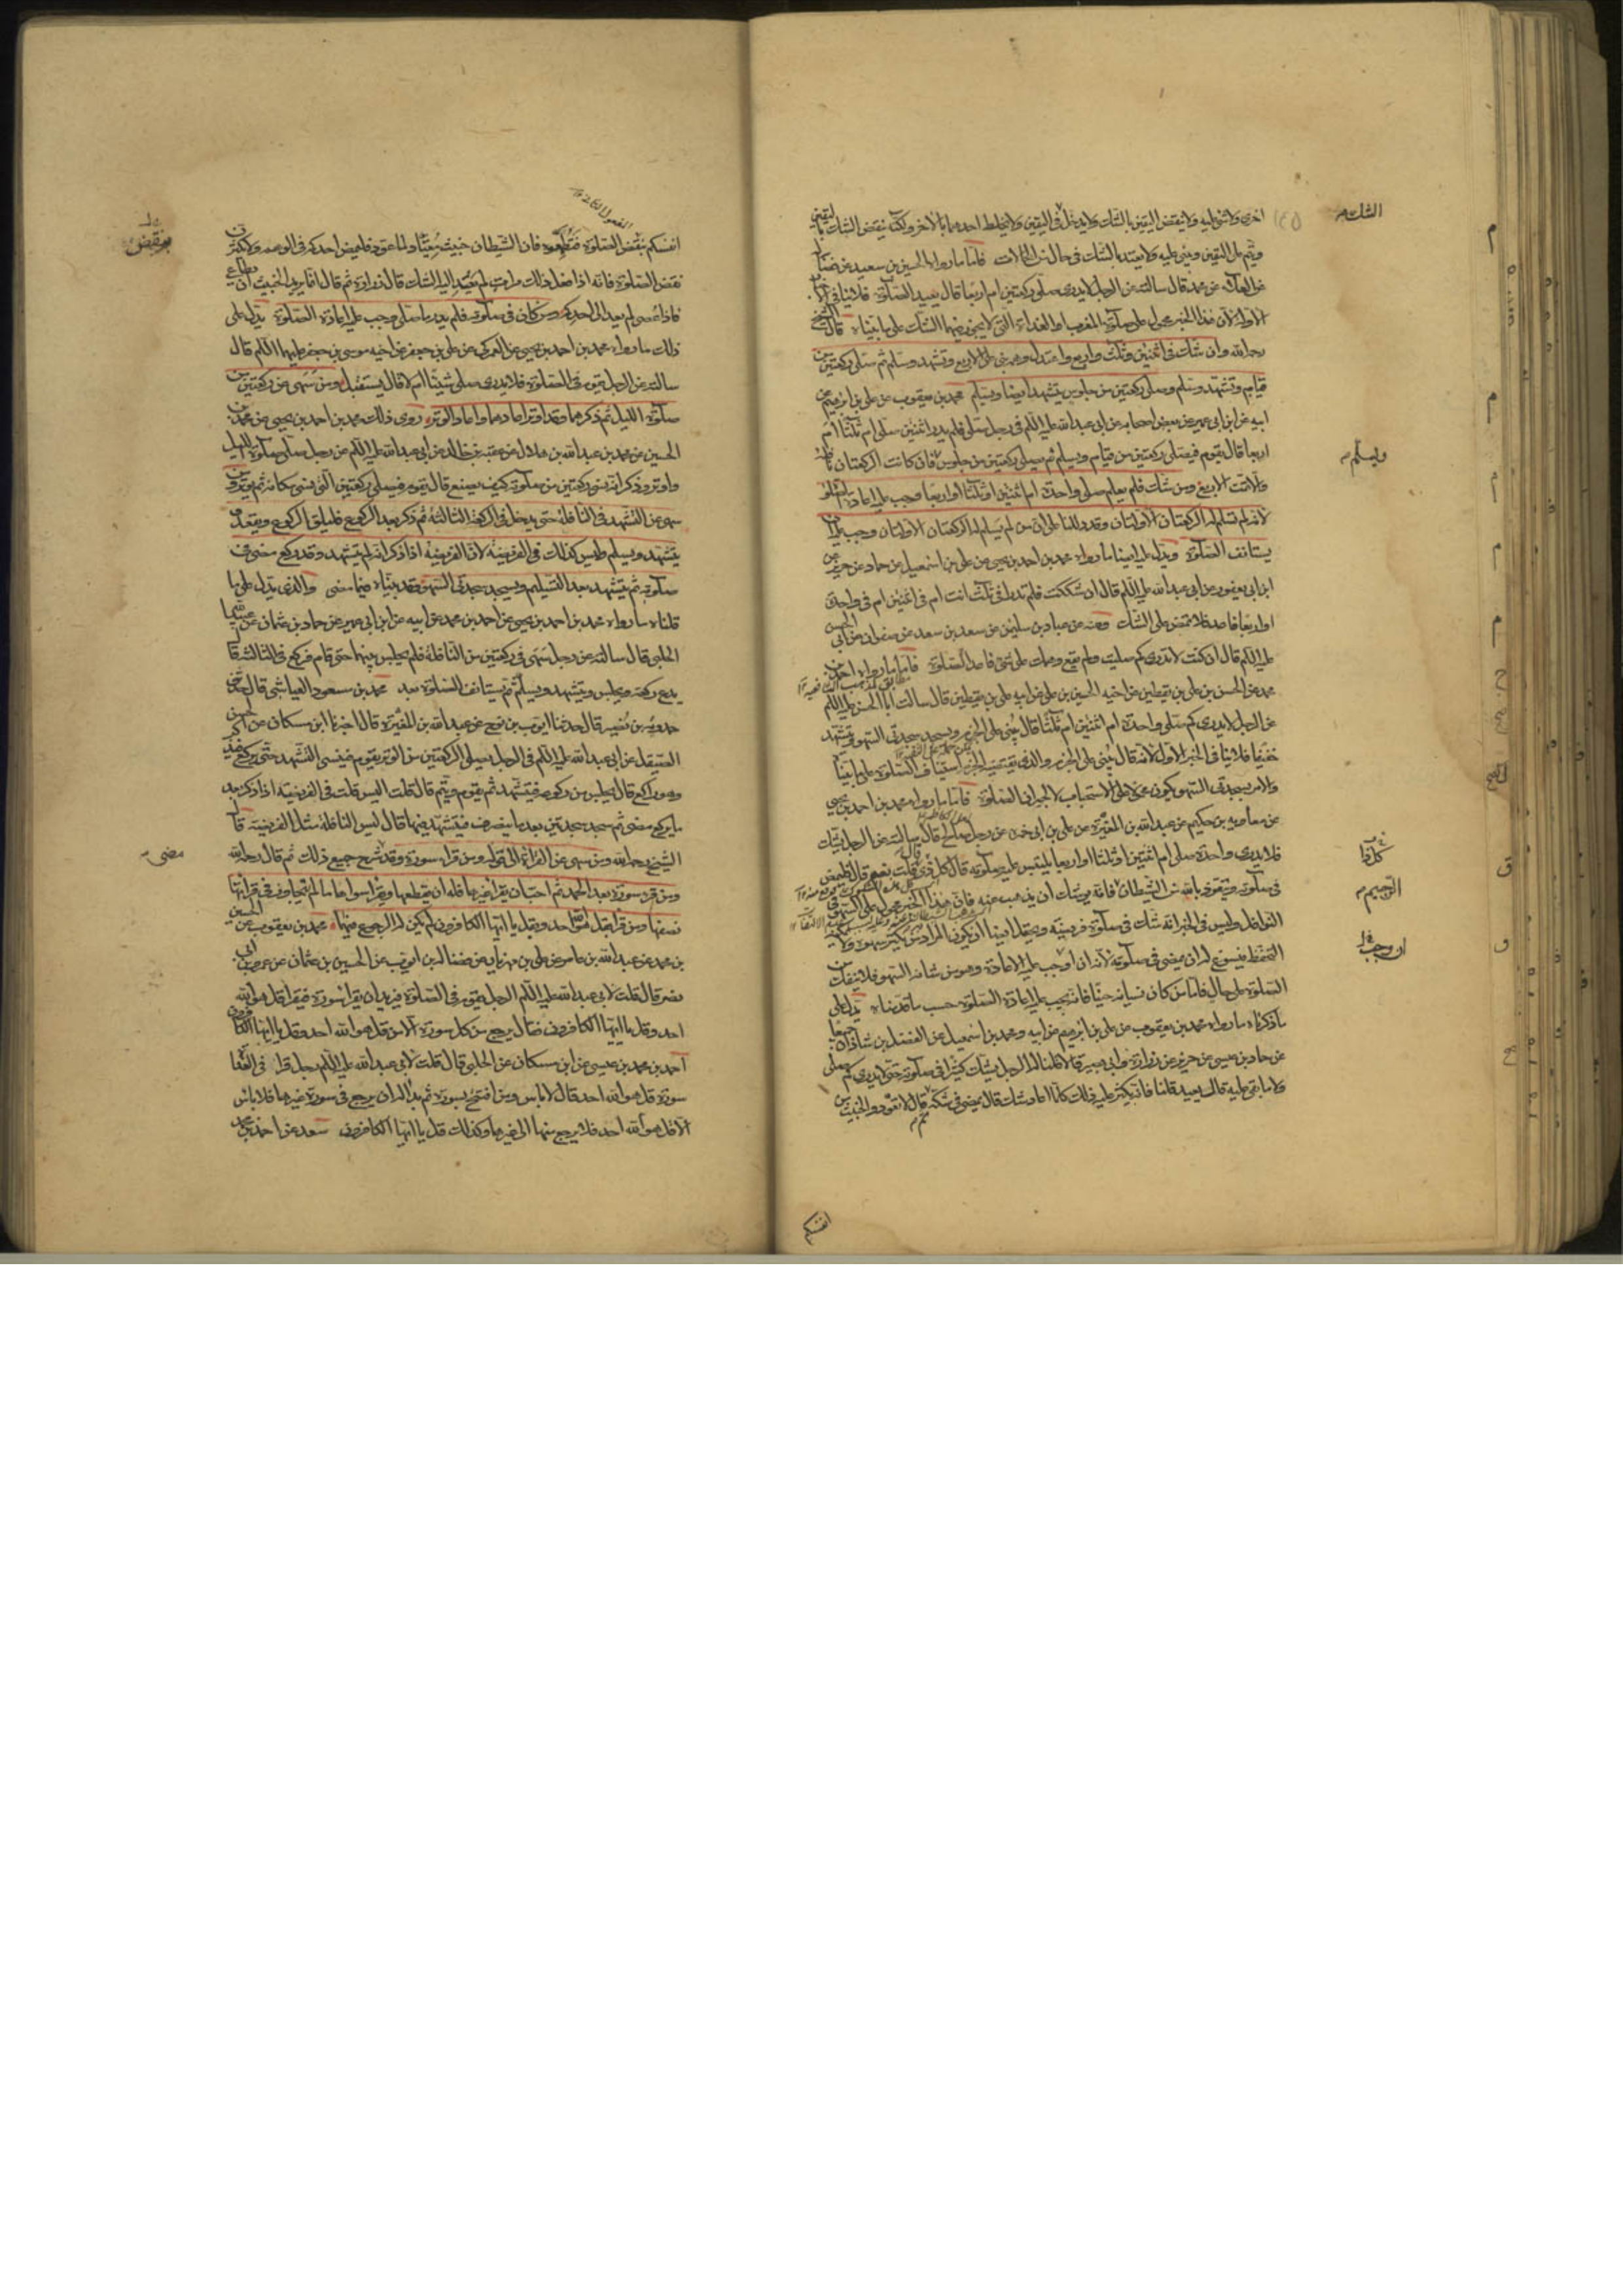 اخرى ولا شئ عليه ولا ينقض اليقين بالشك ولا يدخل الشك في اليقين ولا يخلط احدهما بالاخر ولكنه ينقض الشك باليقين
ويتم على اليقين ويبنى عليه ولا يعتد بالشك في حال من الحالات فاما ما رواه الحسين بن سعيد عن فضالة
عن العلاء عن محمد قال سالته عن الرجل لا يدرى صلى ركعتين ام اربعا قال يعيد الصلوة فلا ينافي الخبر
الاول لان هذا الخبر محمول على صلوة المغرب او الغداة التي لا يجوز فيهما الشك على ما بيناه قال الشيخ
رحمه الله وان شك في اثنتين وثلث واربع واعتدل وهمه بنى على الاربع وتشهد وسلم ثم صلى ركعتين من
قيام وتشهد وسلم وصلى ركعتين من جلوس يتشهد ايضا ويسلم محمد بن يعقوب عن علي بن ابرهيم عن
ابيه عن ابن ابي عمير عن بعض اصحابه عن ابي عبد الله عليه السلم في رجل صلى فلم يدر اثنتين صلى ام ثلثا ام
اربعا قال يقوم فيصلي ركعتين من قيام ويسلم ثم يصلي ركعتين من جلوس فان كانت الركعتان نافلة
والا تمت الاربع ومن شك فلم يعلم صلى واحدة ام اثنتين او ثلثا او اربعا وجب عليه اعادة الصلوة
لانه لم تسلم له الركعتان الاولتان وقد دللنا على ان من لم يسلم له الركعتان الاولتان وجب عليه ان
يستانف الصلوة ويدل عليه ايضا ما رواه محمد بن احمد بن يحيى عن علي بن اسمعيل عن حماد عن حريز عن
ابن ابي يعفور عن ابي عبد الله عليه السلم قال ان شككت فلم تدر افي ثلث انت ام في اثنتين ام في واحدة
او اربع فاعد فلا تمض على الشك وعنه عن عباد بن سليمن عن سعد بن سعد عن صفوان عن ابي الحسن
عليه السلم قال ان كنت لا تدرى كم صليت ولم يقع وهمك على شئ فاعد الصلوة فاما ما رواه احمد بن
محمد عن الحسن بن علي بن يقطين عن اخيه الحسين بن علي عن ابيه علي بن يقطين قال سالت ابا الحسن عليه السلم
عن الرجل لا يدرى كم صلى واحدة ام اثنتين ام ثلثا قال يبني على الجزم ويسجد سجدتي السهو ويتشهد
خفيفا فلا ينافي الخبر الاول لانه قال يبني على الجزم والذي يقتضيه الجزم استيناف الصلوة على ما بيناه
والامر بسجدتي السهو يكون محمولا على الاستحباب لا لجبران الصلوة فاما ما رواه محمد بن احمد بن يحيى
عن معاوية بن حكيم عن عبد الله بن المغيرة عن علي بن ابي حمزة عن رجل صالح قال سالته عن الرجل يشك
فلا يدرى واحدة صلى ام اثنتين او ثلثا او اربعا يلتبس عليه صلوته قال كل ذي قلت نعم قال فليمض
في صلوته ويتعوذ بالله من الشيطان فانه يوشك ان يذهب عنه فان هذا الخبر محمول على السهو في
النوافل وليس في الخبر انه شك في صلوة فريضة ويحتمل ايضا ان يكون المراد من يكثر سهوه ولا يمكنه
التحفظ فيسوغ له ان يمضي في صلوته لانه ان اوجب عليه الاعادة وهو من شانه السهو فلا ينفك من
الصلوة على حال فاما من كان نسيانه حينا فانه يجب عليه اعادة الصلوة حسب ما قدمناه يدل على
ما ذكرناه ما رواه محمد بن يعقوب عن علي بن ابرهيم عن ابيه ومحمد بن اسمعيل عن الفضل بن شاذان جميعا
عن حماد بن عيسى عن حريز عن زرارة وابي بصير قالا قلنا له الرجل يشك كثيرا في صلوته حتى لا يدرى كم صلى
ولا ما بقى عليه قال يعيد قلنا فانه يكثر عليه ذلك كلما اعاد شك قال يمضي في شكه ثم قال لا تعودوا الخبيث من
الشك
ويسلم
كلا قا
الرجيم
ان وجب
انفسكم
انفسكم بنقض الصلوة فتطمعوه فان الشيطان خبيث معتاد لما عود فليمض احدكم في الوهم ولا يكثرن
نقض الصلوة فانه اذا فعل ذلك مرات لم يعد اليه الشك قال زرارة ثم قال انما يريد الخبيث ان يطاع
فاذا عصى لم يعد الى احدكم ومن كان في صلوته فلم يدر ما صلى وجب عليه اعادة الصلوة يدل على
ذلك ما رواه محمد بن احمد بن يحيى عن العمركي عن علي بن جعفر عن اخيه موسى بن جعفر عليهما السلم قال
سالته عن الرجل يقوم في الصلوة فلا يدرى صلى شيئا ام لا قال يستقبل ومن سهى عن ركعتين من
صلوة الليل ثم ذكرهما وقد اوتر اعادهما واعاد الوتر روى ذلك محمد بن احمد بن يحيى عن محمد بن
الحسين عن محمد بن عبد الله بن هلال عن عقبة بن خالد عن ابي عبد الله عليه السلم عن رجل صلى صلوة الليل
واوتر وذكر انه نسى ركعتين من صلوته كيف يصنع قال يقوم فيصلي ركعتين التي نسى مكانه ثم يوتر ومن
سهى عن التشهد في النافلة حتى يدخل في الركعة الثالثة ثم ذكر بعد الركوع فليلق الركوع ويقعد
يتشهد ويسلم وليس كذلك في الفريضة لان الفريضة اذا ذكر انه لم يتشهد وقد ركع مضى في
صلوته ثم يتشهد بعد التسليم ويسجد سجدتي السهو وقد بيناه فيما مضى والذي يدل على ما
قلناه ما رواه محمد بن احمد بن يحيى عن احمد بن محمد عن ابيه عن ابن ابي عمير عن حماد بن عثمان عن عبيد الله
الحلبي قال سالته عن رجل سهى في ركعتين من النافلة فلم يجلس بينهما حتى قام فركع في الثالثة قال
يدع ركعة ويجلس ويتشهد ويسلم ثم يستانف الصلوة بعد محمد بن مسعود العياشي قال حدثني
حمدويه بن نصير قال حدثنا ايوب بن نوح عن عبد الله بن المغيرة قال اخبرنا ابن مسكان عن الحسن
الصيقل عن ابي عبد الله عليه السلم في الرجل يصلي الركعتين من الوتر يقوم فينسى التشهد حتى يركع فيذكر
وهو راكع قال يجلس من ركوعه فيتشهد ثم يقوم فيتم قال قلت اليس قلت في الفريضة اذا ذكر بعد
ما يركع مضى ثم سجد سجدتين بعد ما ينصرف فيتشهد فيهما قال ليس النافلة مثل الفريضة قال
الشيخ رحمه الله ومن سهى عن القراءة الى قوله ومن قرا سورة وقد شرح جميع ذلك ثم قال رحمه الله
ومن قرء سورة بعد الحمد ثم احب ان يقرا غيرها فله ان يقطعها ويقرا سواها ما لم يتجاوز في قراءتها
نصفها ومن قرأ بقل هو الله احد وبقل يا ايها الكافرون لم يكن له الرجوع فيهما محمد بن يعقوب عن الحسين
بن محمد عن عبد الله بن عامر عن علي بن مهزيار عن فضالة بن ايوب عن الحسين بن عثمان عن عمرو بن ابي
نصر قال قلت لابي عبد الله عليه السلم الرجل يقوم في الصلوة فيريد ان يقرا سورة فيقرا قل هو الله
احد وقل يا ايها الكافرون فقال يرجع من كل سورة الا من قل هو الله احد وقل يا ايها الكافرون
احمد بن محمد بن عيسى عن ابن مسكان عن الحلبي قال قلت لابي عبد الله عليه السلم رجل قرا في الغداة
سورة قل هو الله احد قال لا باس ومن افتتح بسورة ثم بدا له ان يرجع في سورة غيرها فلا باس
الا قل هو الله احد فلا يرجع منها الى غيرها وكذلك قل يا ايها الكافرون سعد عن احمد بن محمد
بنقض
مضى